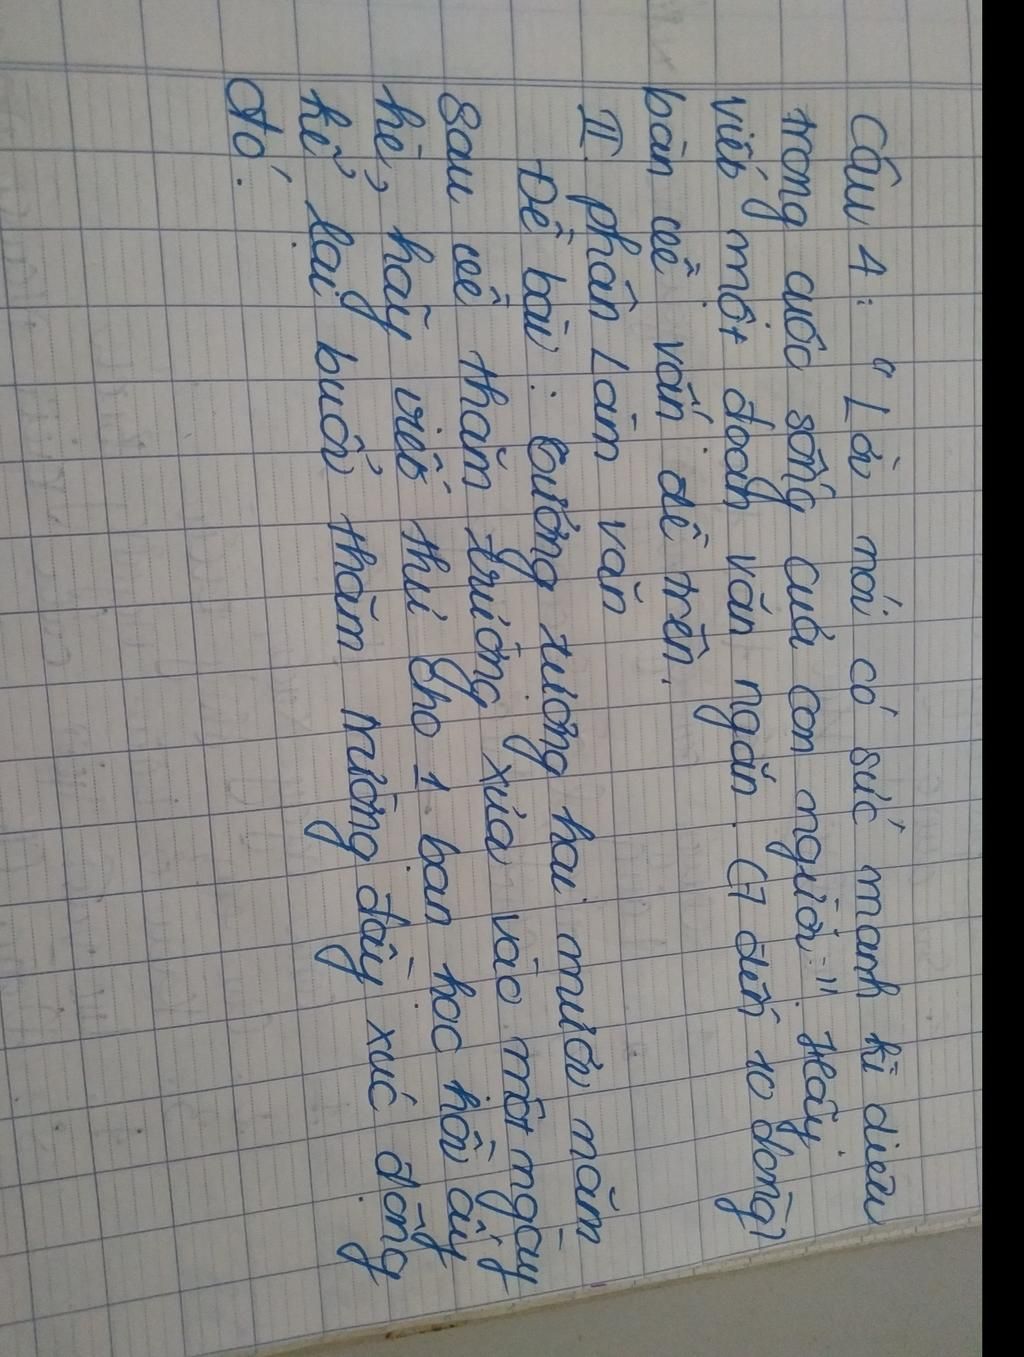 Câu 4: "Lời nói có sức mạnh kì diệu
trong cuộc sống của con người." Hãy
viết một đoạn văn ngắn (7 đến 10 dòng)
bàn về vấn đề trên.
II. phần Làm văn
Đề bài: Tưởng tượng hai mươi năm
sau về thăm trường xưa vào một ngày
hè, hãy viết thư cho 1 bạn học hồi ấy
kể lại buổi thăm trường đầy xúc động
đó.